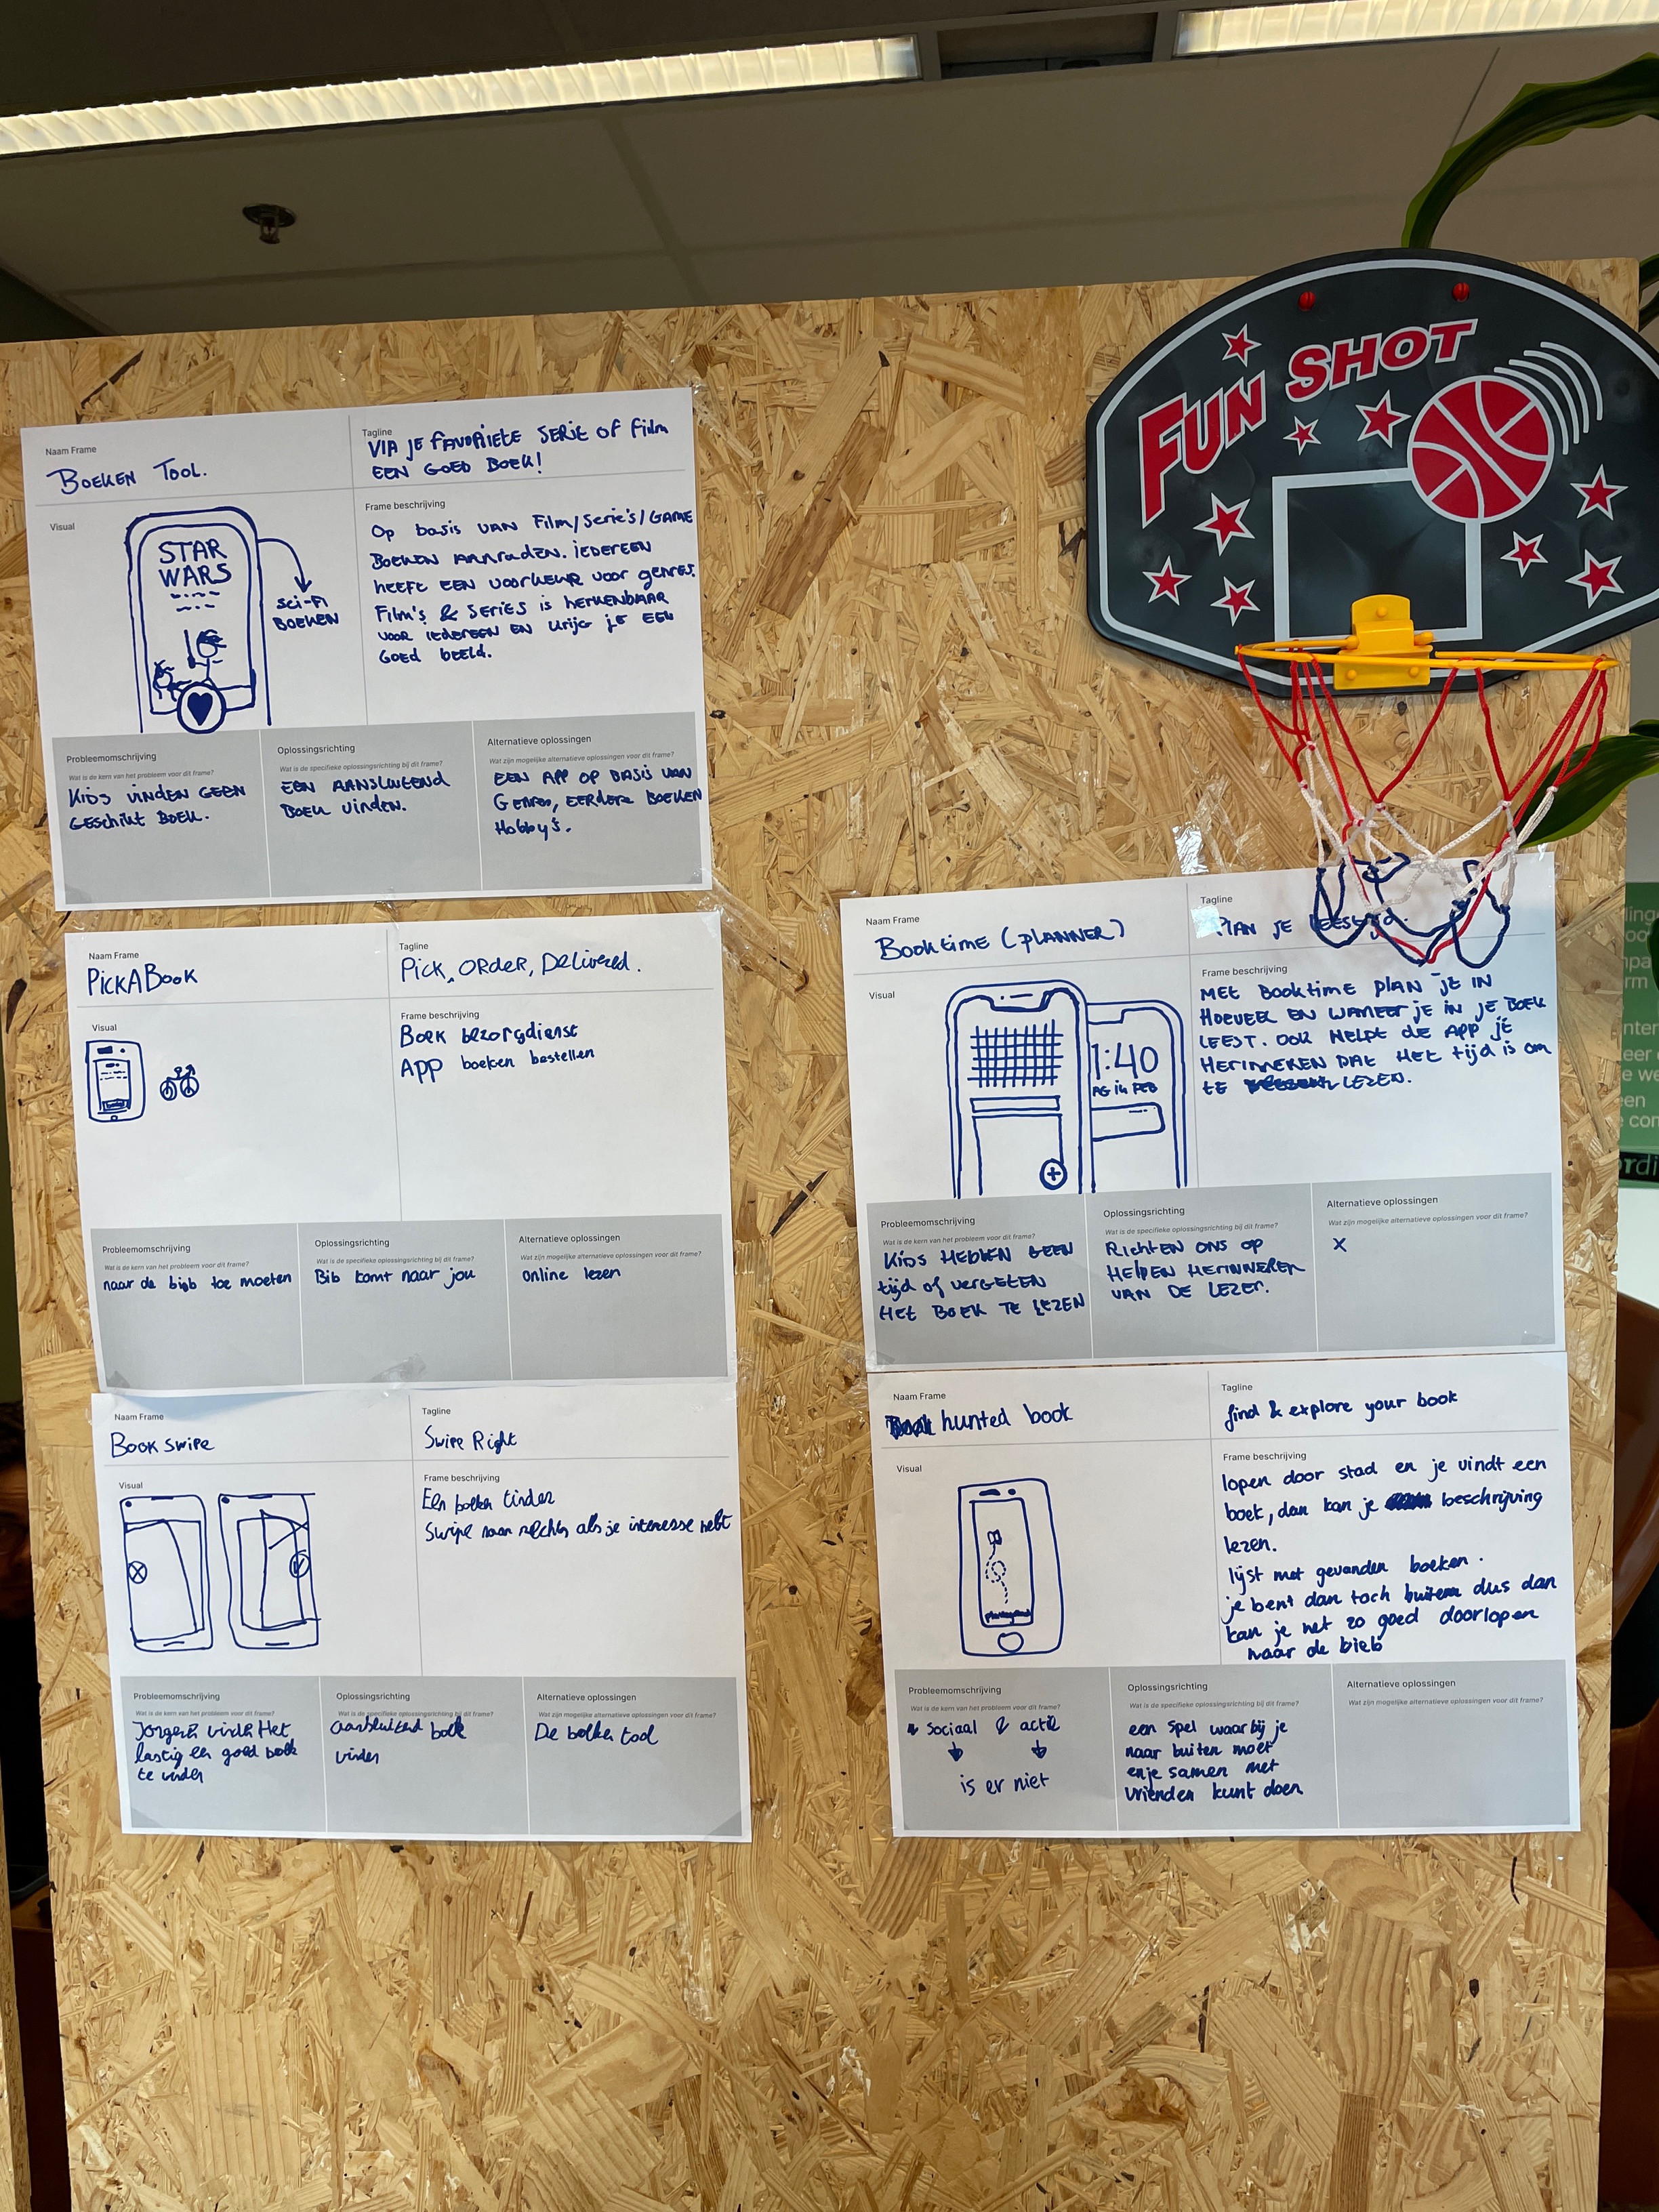 FUN SHOT
Naam Frame
BOEKEN TOOL.
Tagline
VIA JE FAVORIETE SERIE OF Film
EEN GOED BOEK!
Visual
STAR
WARS
SCI-FI
BOEKEN
Frame beschrijving
Op basis VAN Film/Serie's/GAME
BOEKEN AANRADEN. IEDEREEN
HEEFT EEN VOORKEUR VOOR genres.
Film's & SERIES is HERKENBAAR
VOOR IEDEREEN EN krijg je EEN
GOED beeld.
Probleemomschrijving
Wat is de kern van het probleem voor dit frame?
Kids VINDEN GEEN
GESCHIKT BOEK.
Oplossingsrichting
Wat is de specifieke oplossingsrichting bij dit frame?
EEN AANSLUITEND
BOEK VINDEN.
Alternatieve oplossingen
Wat zijn mogelijke alternatieve oplossingen voor dit frame?
EEN APP OP BASIS VAN
Genres, EERDERE BOEKEN
Hobby's.
Naam Frame
PICKABOOK
Tagline
Pick, ORdER, DELivered.
Visual
Frame beschrijving
Boek bezorgdienst
APP boeken bestellen
Probleemomschrijving
Wat is de kern van het probleem voor dit frame?
naar de bieb toe moeten
Oplossingsrichting
Wat is de specifieke oplossingsrichting bij dit frame?
Bib komt naar jou
Alternatieve oplossingen
Wat zijn mogelijke alternatieve oplossingen voor dit frame?
online lezen
Naam Frame
Book swipe
Tagline
Swipe Right
Visual
Frame beschrijving
Een boeken tinder
Swipe naar rechts als je interesse hebt
Probleemomschrijving
Wat is de kern van het probleem voor dit frame?
Jongeren vinden Het
lastig een goed boek
te vinden
Oplossingsrichting
Wat is de specifieke oplossingsrichting bij dit frame?
aansluitend boek
vinden
Alternatieve oplossingen
Wat zijn mogelijke alternatieve oplossingen voor dit frame?
De boeken tool
Naam Frame
Booktime (PLANNER)
Tagline
PLAN JE LEESTijd.
Visual
1:40
Frame beschrijving
MET BOOKtime PLAN JE IN
HOEVEEL EN WANEER JE IN JE BOEK
LEEST. OOK HELPT DE APP JE
HERINNEREN DAT HET tijd is om
TE LEZEN.
Probleemomschrijving
Wat is de kern van het probleem voor dit frame?
Kids HEBBEN GEEN
tijd of VERGETEN
HET BOEK TE LEZEN
Oplossingsrichting
Wat is de specifieke oplossingsrichting bij dit frame?
RICHTEN ONS OP
HELPEN HERINNEREN
VAN DE LEZER.
Alternatieve oplossingen
Wat zijn mogelijke alternatieve oplossingen voor dit frame?
X
Naam Frame
hunted book
Tagline
find & explore your book
Visual
Frame beschrijving
lopen door stad en je vindt een
boek, dan kan je beschrijving
lezen.
lijst met gevonden boeken.
je bent dan toch buiten dus dan
kan je net zo goed doorlopen
naar de bieb
Probleemomschrijving
Wat is de kern van het probleem voor dit frame?
Sociaal & actie
is er niet
Oplossingsrichting
Wat is de specifieke oplossingsrichting bij dit frame?
een spel waarbij je
naar buiten moet
en je samen met
vrienden kunt doen
Alternatieve oplossingen
Wat zijn mogelijke alternatieve oplossingen voor dit frame?